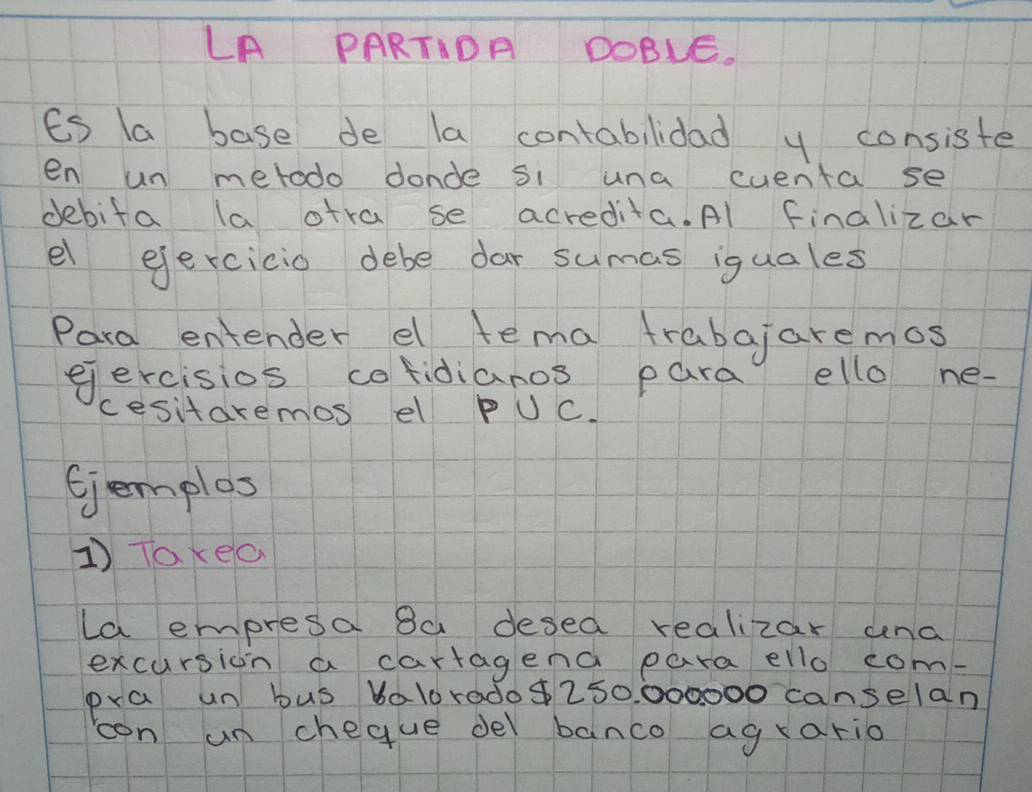 LA PARTIDA DOBLE.
Es la base de la contabilidad y consiste
en un metodo donde si una cuenta se
debita la otra se acredita. Al finalizar
el ejercicio debe dar sumas iguales
Para entender el tema trabajaremos
ejercisios cotidianos para ello ne-
cesitaremos el PUC.
Ejemplos
1) Tarea
La empresa 8a desea realizar una
excursión a cartagena para ello com-
pra un bus Valorado $250.000.000 canselan
con un cheque del banco agrario